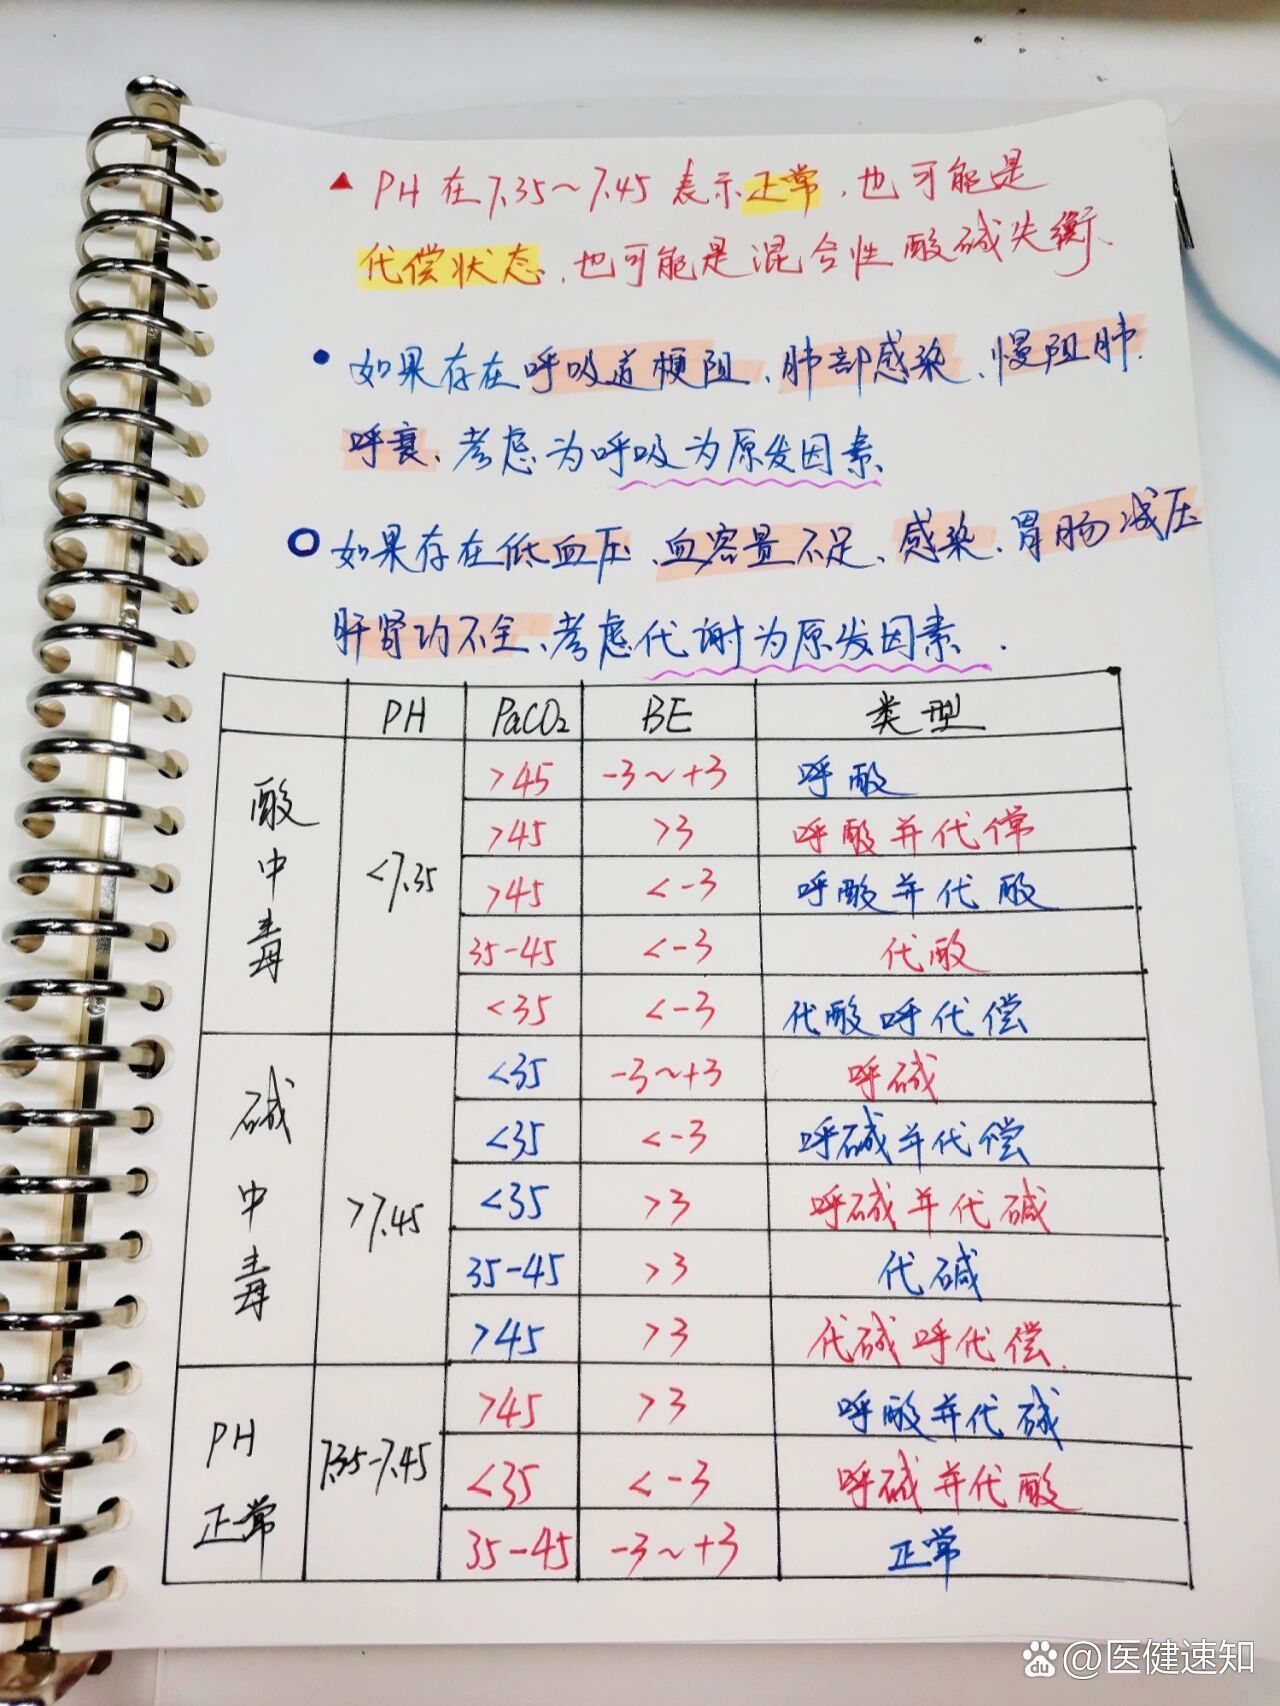 ▲ PH在7.35~7.45表示正常,也可能是
代偿状态,也可能是混合性酸碱失衡、
• 如果存在呼吸道梗阻、肺部感染、慢阻肺.
呼衰、考虑为呼吸为原发因素
○ 如果存在低血压、血容量不足、感染、胃肠减压
肝肾功不全、考虑代谢为原发因素.
PH PaCO₂ BE 类型
酸中毒 <7.35 >45 -3~+3 呼酸
>45 >3 呼酸并代偿
>45 <-3 呼酸并代酸
35-45 <-3 代酸
<35 <-3 代酸呼代偿
碱中毒 >7.45 <35 -3~+3 呼碱
<35 <-3 呼碱并代偿
<35 >3 呼碱并代碱
35-45 >3 代碱
>45 >3 代碱呼代偿.
PH正常 7.35-7.45 >45 >3 呼酸并代碱
<35 <-3 呼碱并代酸
35-45 -3~+3 正常
du @医健速知